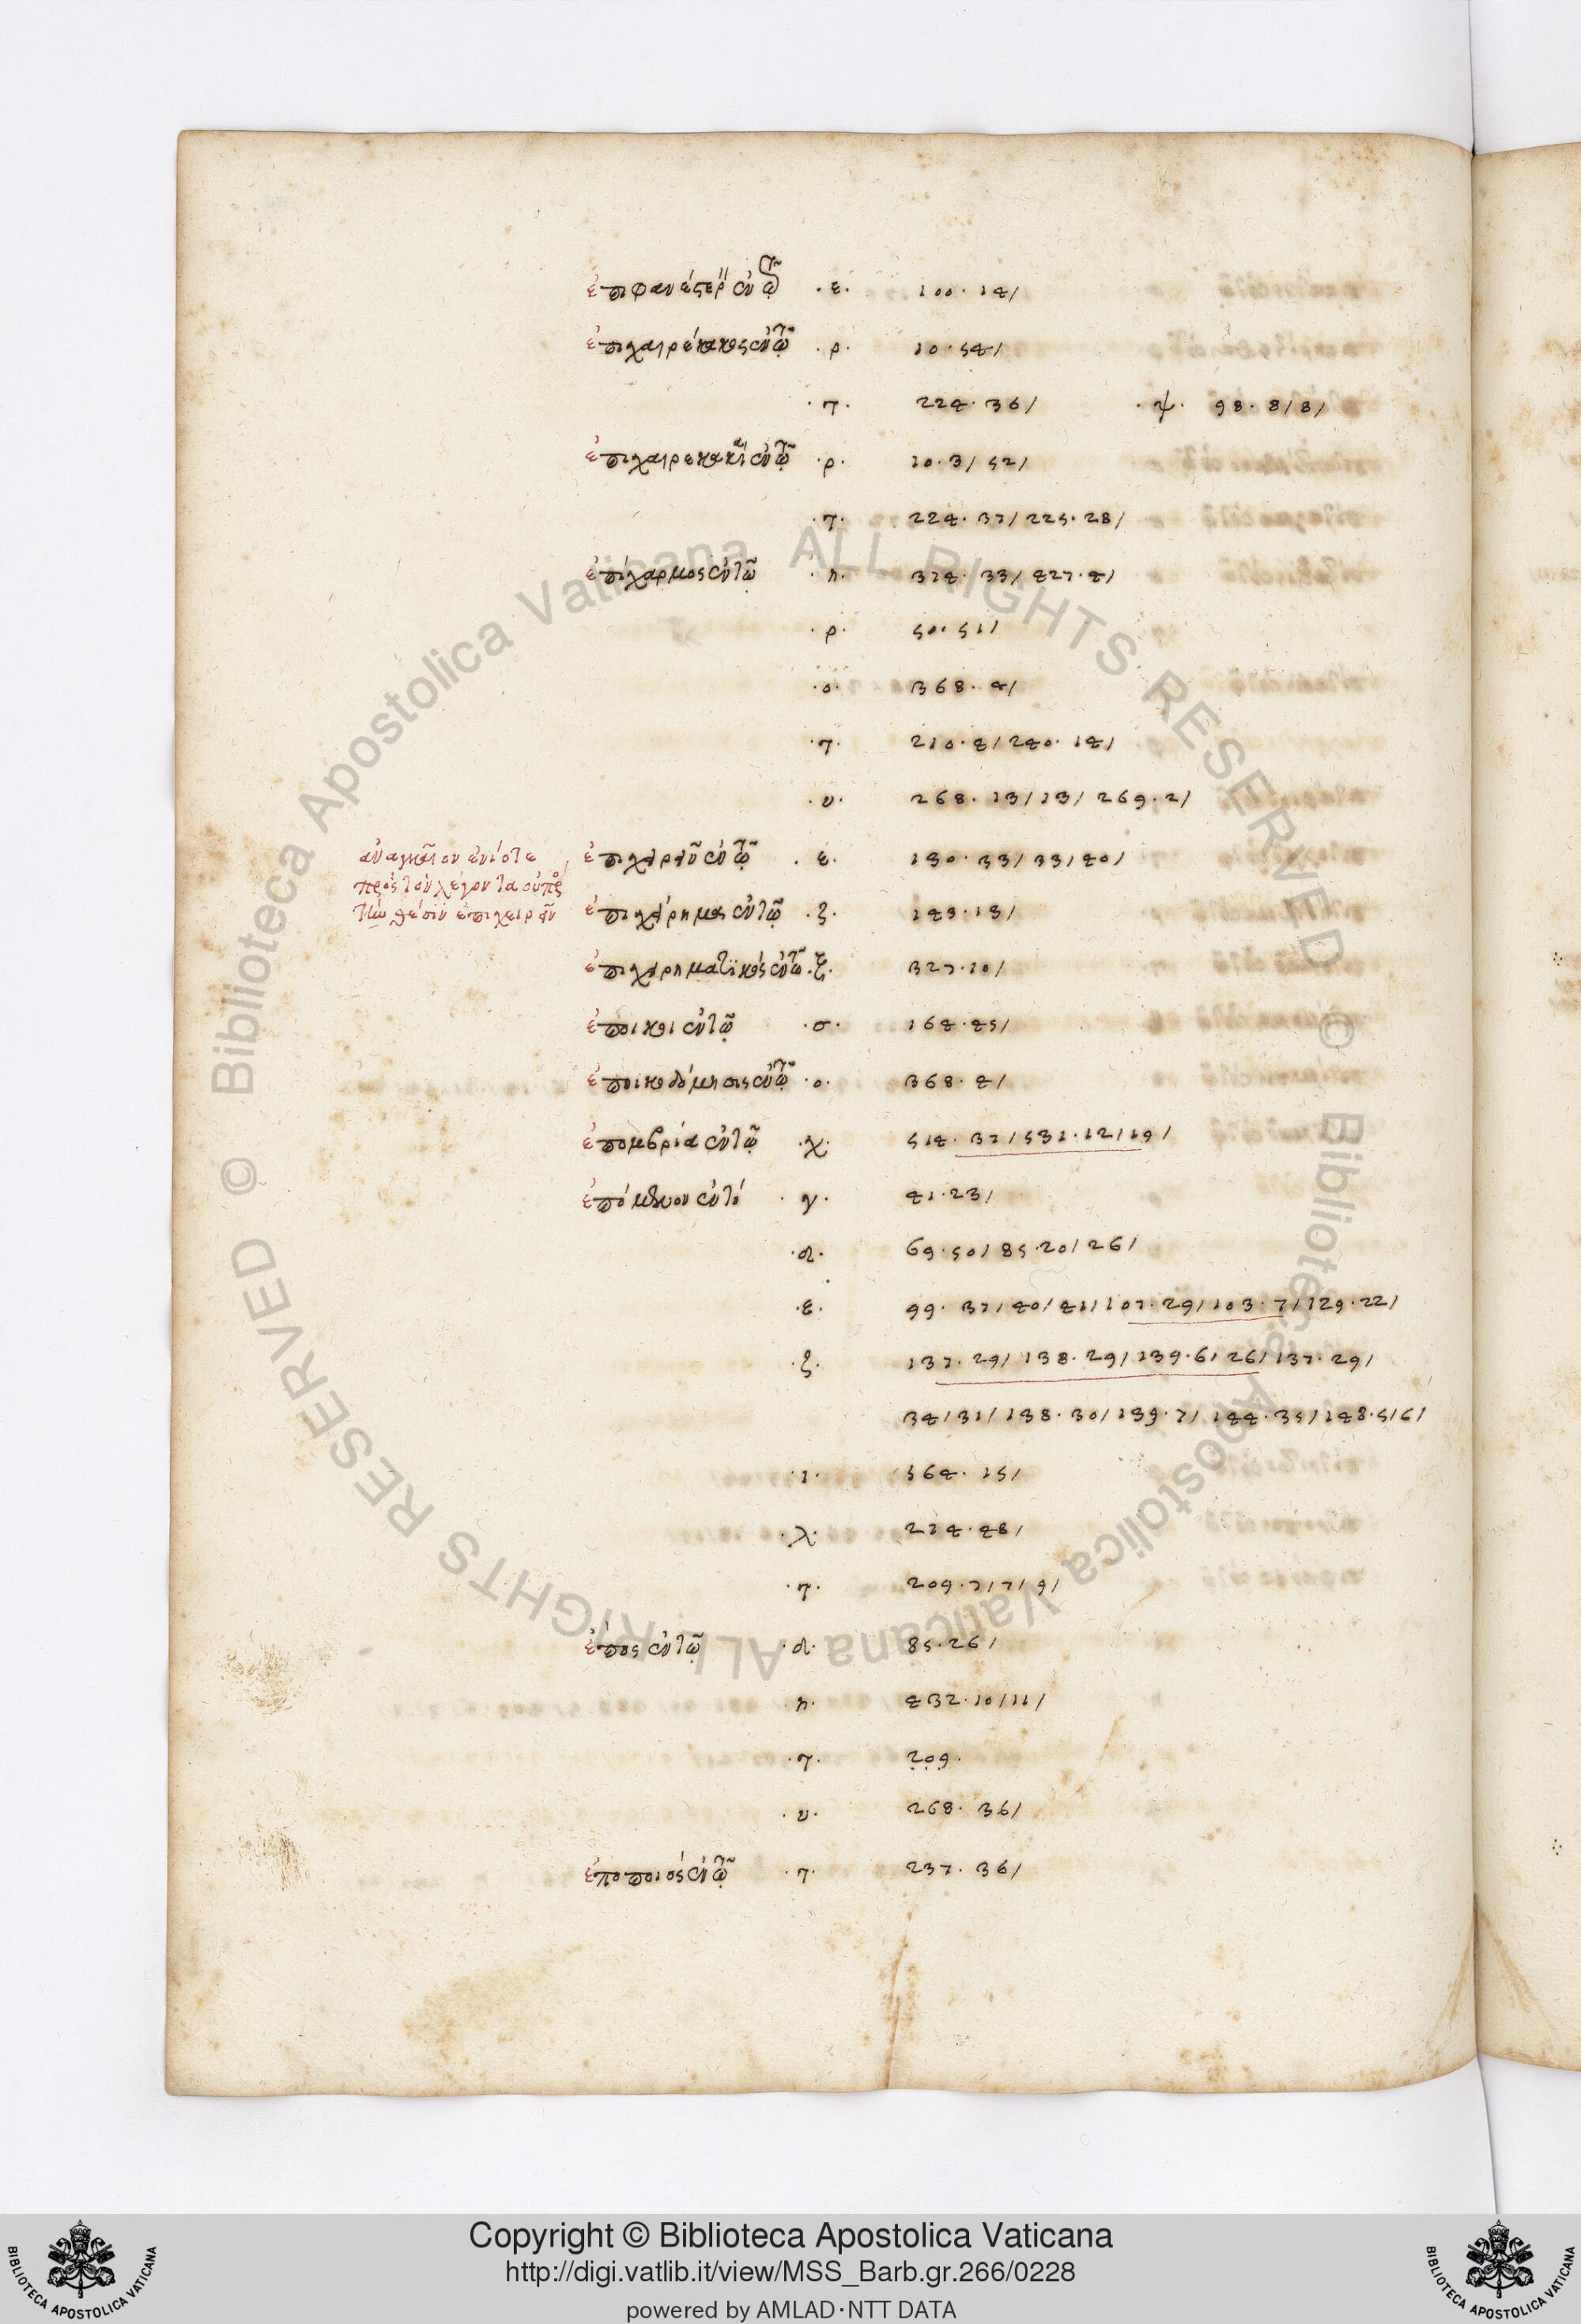 ἐπιφανέστερον ἐν τῷ · ε · 100 · 14 /
ἐπιχαιρέκακος ἐν τῷ · ρ · 10 · 54 /
· τ · 224 · 36 / · ψ · 98 · 8 / 8 /
ἐπιχαιρεκακία ἐν τῷ · ρ · 10 · 3 / 52 /
· τ · 224 · 37 / 225 · 28 /
ἐπίχαρμος ἐν τῷ · η · 374 · 33 / 427 · 4 /
· ρ · 50 · 51 /
· ο · 368 · 4 /
· τ · 210 · 4 / 240 · 14 /
· υ · 268 · 13 / 13 / 269 · 2 /
ἀναγκαῖον ἐνίοτε
πρὸς τὸν λέγοντα
θέσιν ἐπιχειρεῖν
ἐπιχειρεῖν ἐν τῷ · ε · 130 · 33 / 33 / 40 /
ἐπιχείρημα ἐν τῷ · ζ · 143 · 13 /
ἐπιχειρηματικός ἐν τῷ · ξ · 327 · 10 /
ἔποικοι ἐν τῷ · σ · 164 · 45 /
ἐποικοδόμησις ἐν τῷ · ο · 368 · 4 /
ἐπομβρία ἐν τῷ · χ · 514 · 37 / 531 · 12 / 19 /
ἑπόμενον ἐν τῷ · γ · 41 · 23 /
· δ · 69 · 50 / 85 · 20 / 26 /
· ε · 99 · 37 / 40 / 41 / 107 · 29 / 103 · 7 / 129 · 22 /
· ζ · 137 · 29 / 138 · 29 / 139 · 6 / 26 / 137 · 29 /
34 / 31 / 138 · 30 / 139 · 7 / 144 · 35 / 148 · 5 / 6 /
· ι · 564 · 15 /
· λ · 214 · 48 /
· τ · 209 · 7 / 7 / 9 /
ἔπος ἐν τῷ · δ · 85 · 26 /
· η · 432 · 10 / 11 /
· τ · 209 ·
· υ · 268 · 36 /
ἐποποιός ἐν τῷ · τ · 237 · 36 /
© Biblioteca Apostolica Vaticana ALL RIGHTS RESERVED © Biblioteca Apostolica Vaticana ALL RIGHTS RESERVED
Copyright © Biblioteca Apostolica Vaticana
http://digi.vatlib.it/view/MSS_Barb.gr.266/0228
powered by AMLAD·NTT DATA
BIBLIOTECA APOSTOLICA VATICANA
BIBLIOTECA APOSTOLICA VATICANA